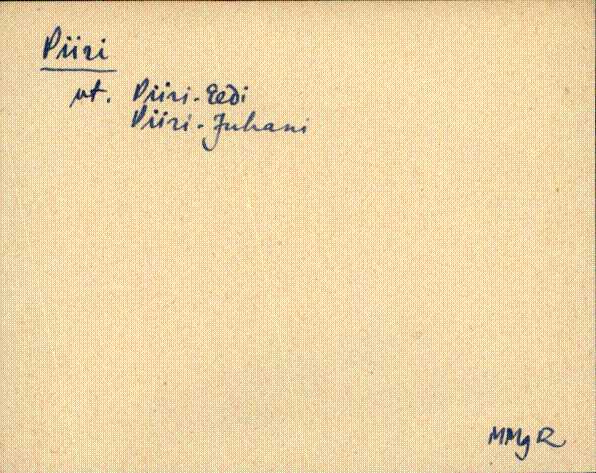 Piiri
vt. Piiri-Eedi
Piiri-Juhani
MMg R